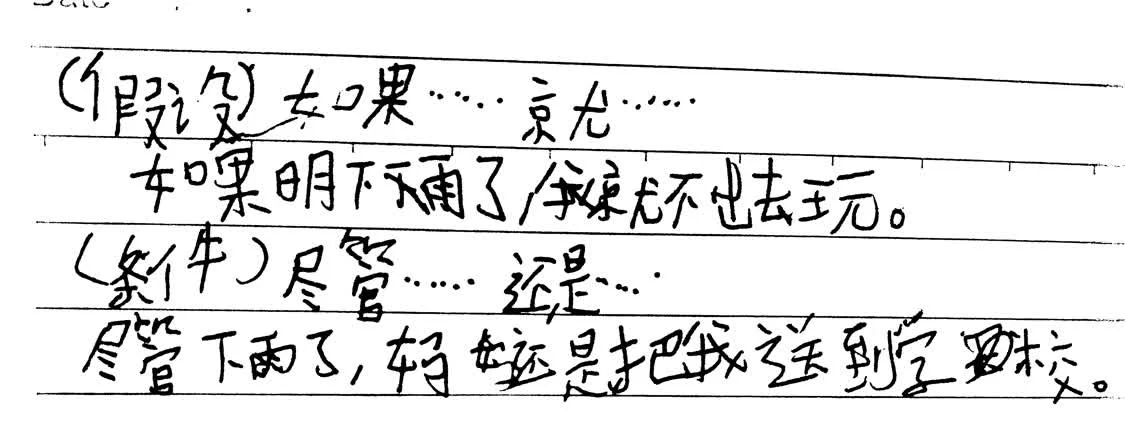 (假设)如果……就……
如果明下天雨了,我就不出去玩。
(条件)尽管……还是…
尽管下雨了,妈妈还是把我送到学校。